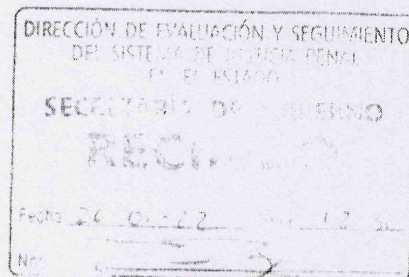 DIRECCIÓN DE EVALUACIÓN Y SEGUIMIENTO
DEL SISTEMA DE JUSTICIA PENAL
EN EL ESTADO
SECRETARÍA DE GOBIERNO
RECIBIDO
Fecha